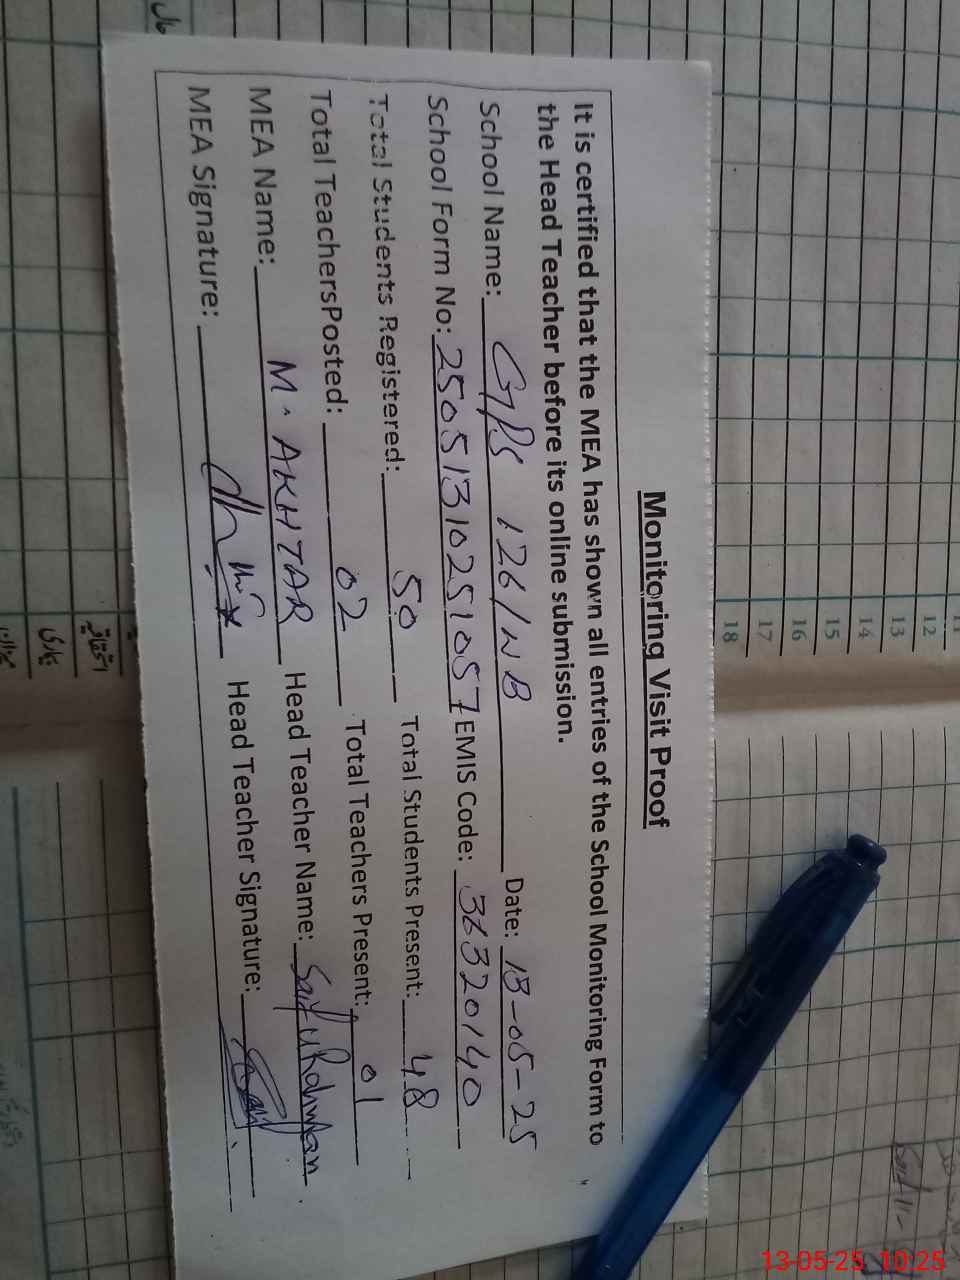 Monitoring Visit Proof
It is certified that the MEA has shown all entries of the School Monitoring Form to
the Head Teacher before its online submission.
School Name: GPS 126/WB Date: 13-05-25
School Form No: 25051310251057 EMIS Code: 36320140
Total Students Registered: 50 Total Students Present: 48
Total TeachersPosted: 02 Total Teachers Present: 01
MEA Name: M. AKHTAR Head Teacher Name: Saif u Rahman
MEA Signature: Head Teacher Signature:
11
12
13
14
15
16
17
18
13-05-25 10:25